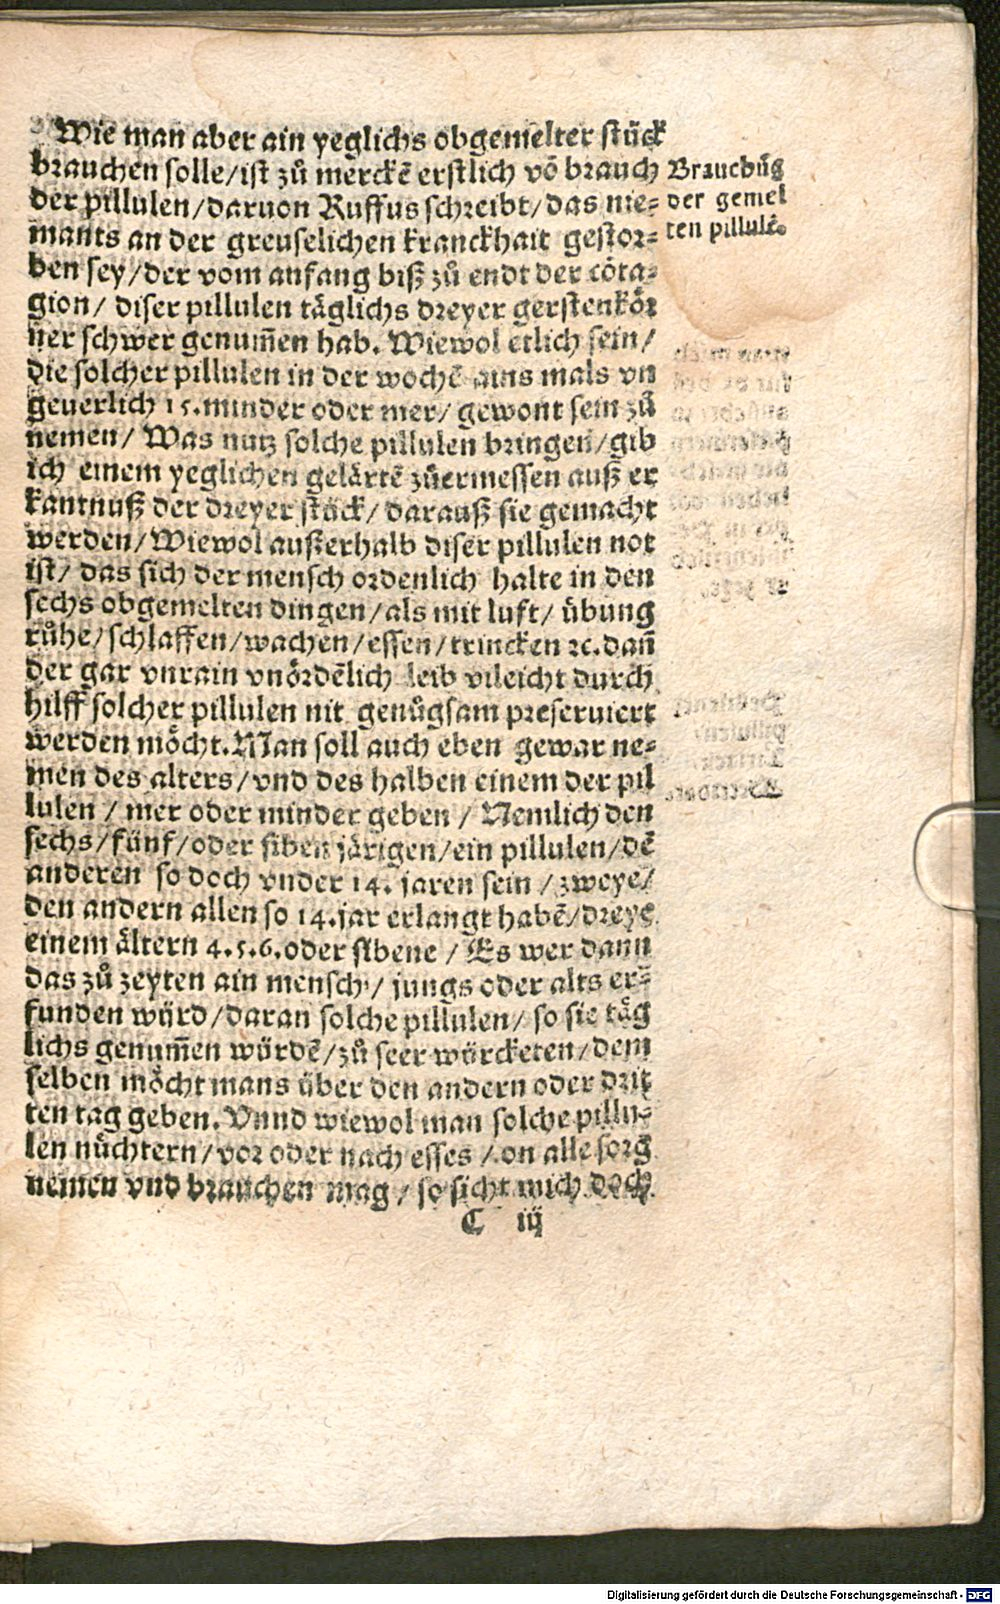 Wie man aber ain yeglichs obgemelter stück
brauchen solle/ist zů merckē erstlich vō brauch
der pillulen/daruon Ruffus schreibt/das nie-
mants an der greuselichen kranckhait gestor-
ben sey/der vom anfang biß zů endt der cōta-
gion/ diser pillulen täglichs dreyer gerstenkör
ner schwer genum̄en hab. Wiewol etlich sein/
die solcher pillulen in der wochē ains mals vn
geuerlich 15. minder oder mer/ gewont sein zů
nemen/ Was nutz solche pillulen bringen/gib
ich einem yeglichen gelärtē zůermessen auß er
kantnuß der dreyer stück/ darauß sie gemacht
werden/ Wiewol außerhalb diser pillulen not
ist/ das sich der mensch ordenlich halte in den
sechs obgemelten dingen/als mit luft/ übung
růhe/schlaffen/wachen/essen/trincken ꝛc. dañ
der gar vnrain vnördēlich leib vileicht durch
hilff solcher pillulen nit genůgsam preseruiert
werden möcht. Man soll auch eben gewar ne-
men des alters/vnd des halben einem der pil
lulen / mer oder minder geben / Nemlich den
sechs/fünf/oder siben järigen/ein pillulen/dē
anderen so doch vnder 14. jaren sein /zweye/
den andern allen so 14.jar erlangt habē/dreye
einem ältern 4.5.6.oder sibene / Es wer dann
das zů zeyten ain mensch/ jungs oder alts er-
funden würd/daran solche pillulen/ so sie täg
lichs genum̄en würdē/zů seer würcketen/dem
selben möcht mans über den andern oder drit
ten tag geben. Vnnd wiewol man solche pillu-
len nüchtern/vor oder nach esses /on alle sorg
nemen vnd brauchen mag / so sicht mich doch
C iij
Brauchūg
der gemel
ten pillulē.
Digitalisierung gefördert durch die Deutsche Forschungsgemeinschaft - DFG